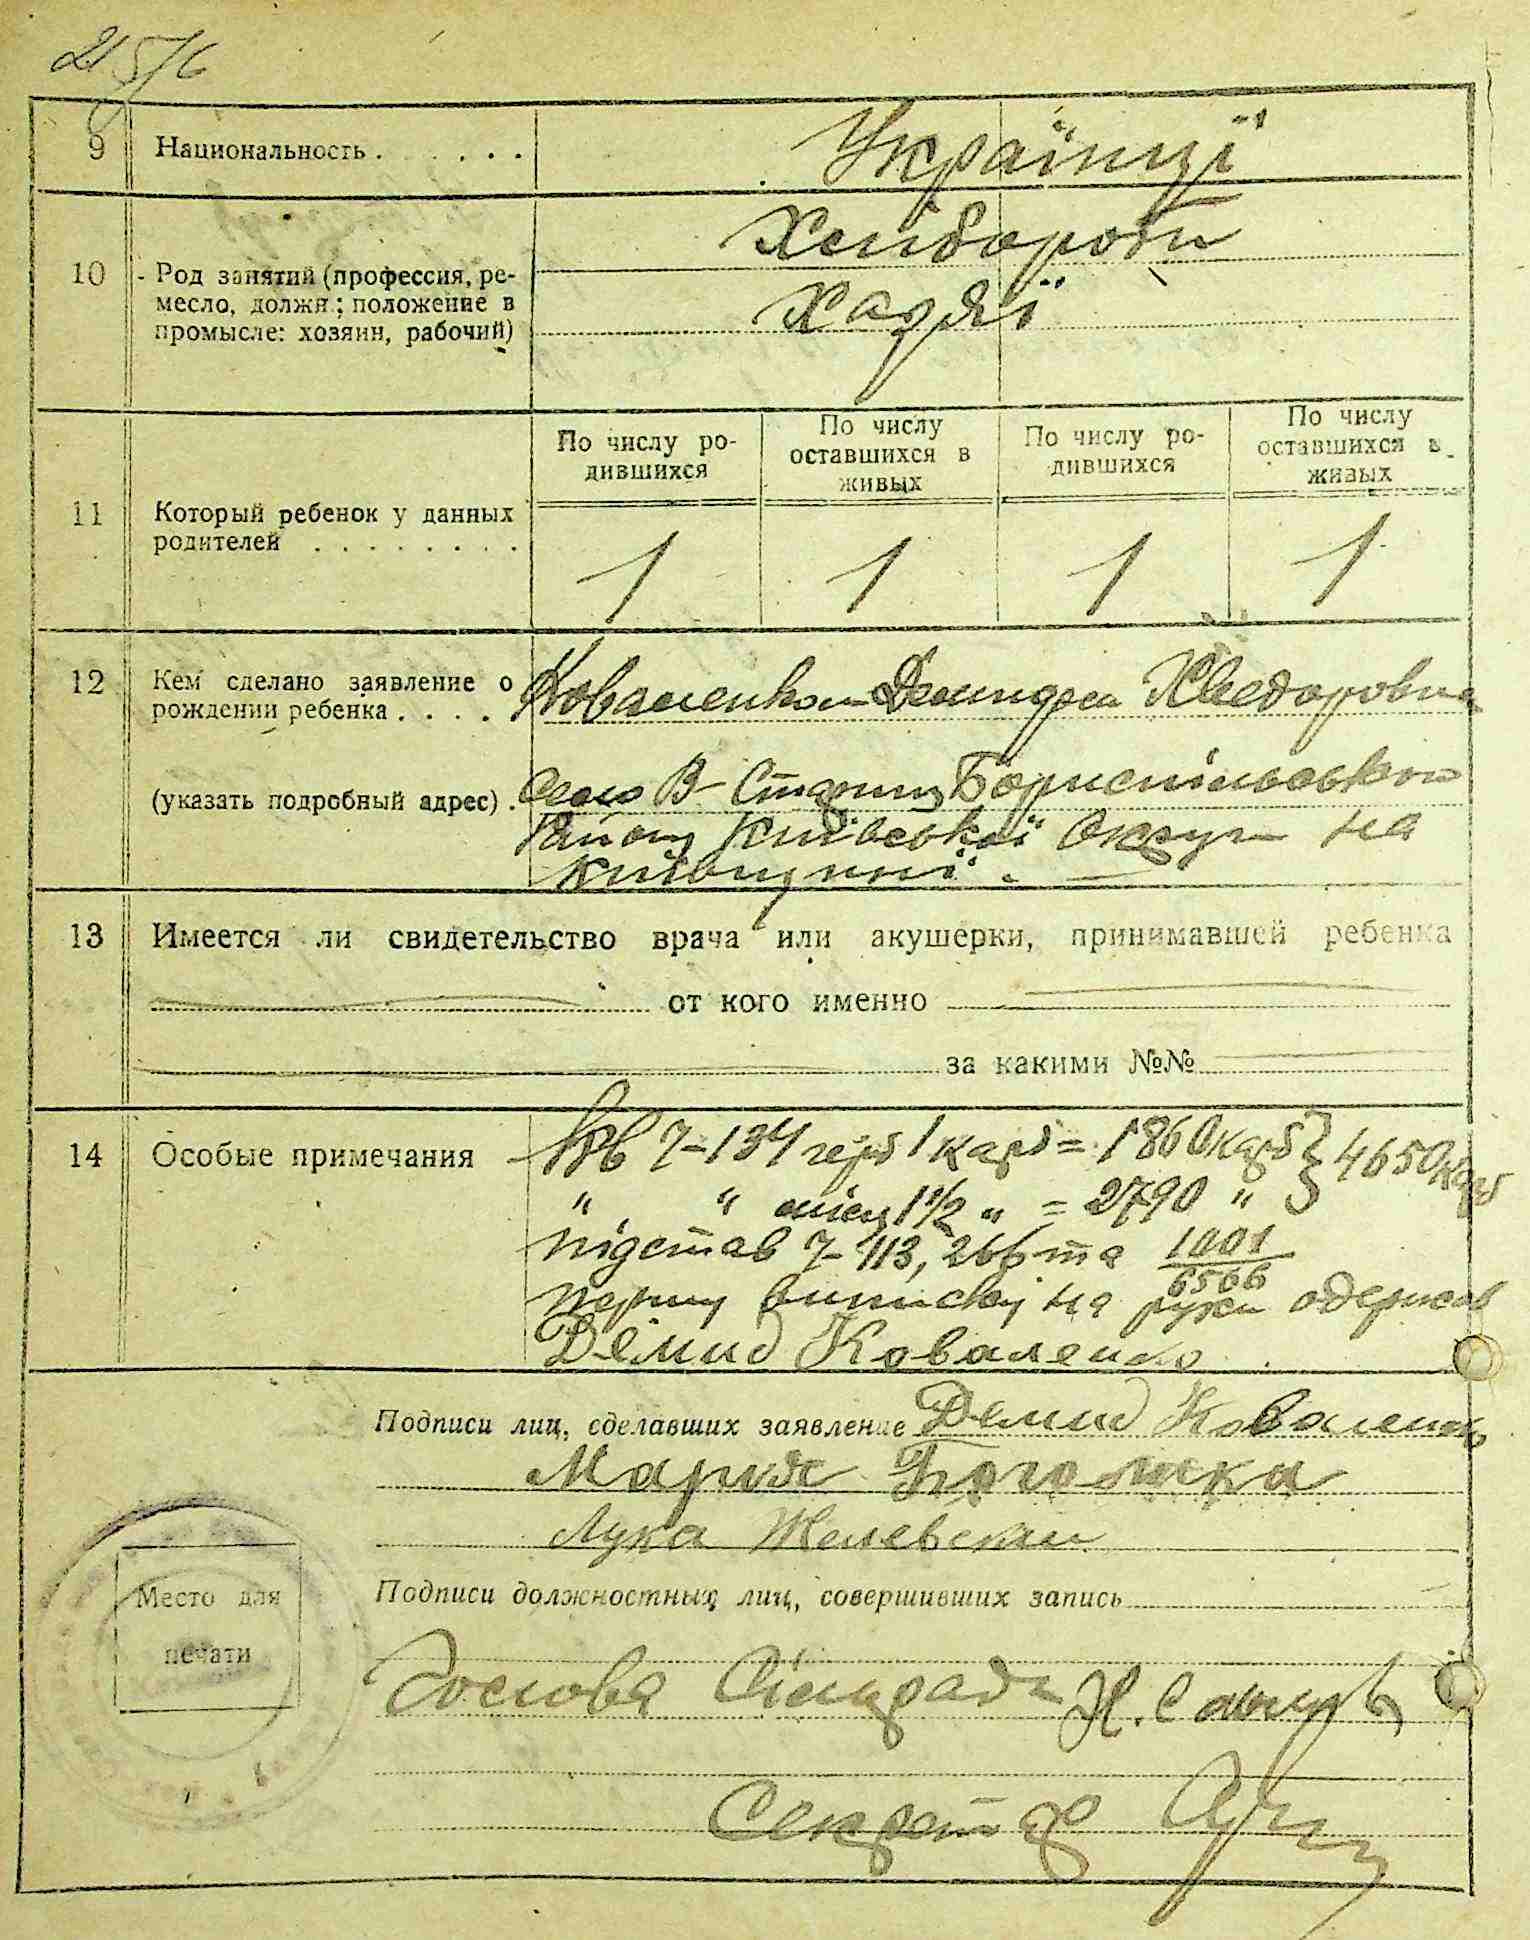 9 Национальность . . . . . . Українці
Хлібороби
10 Род занятий (профессия, ре-
месло, должн.; положение в
промысле: хозяин, рабочий)
Хазяї
По числу ро-
дившихся
По числу
оставшихся в
живых
По числу ро-
дившихся
По числу
оставшихся в
живых
11 Который ребенок у данных
родителей . . . . . . . .
1 1 1 1
12 Кем сделано заявление о
рождении ребенка . . . .
Коваленком Хведорович
(указать подробный адрес) .
Село В-Стариця Бориспільського
Району Київської Округи на
Київщині.
13 Имеется ли свидетельство врача или акушерки, принимавшей ребенка
от кого именно
за какими №№
14 Особые примечания
Кв 7-134 герб 1 карб = 1860 карб } 4650 карб
" " місц 1 1/2 " = 2790 "
підстав 7-113, 266 та 1001/6566
першу виписку на руки одержав
Демид Коваленко
Подписи лиц, сделавших заявление Демид Коваленко
Мария
Лука
Место для
печати
Подписи должностных лиц, совершивших запись
Голова Сільради Н.
Секретар